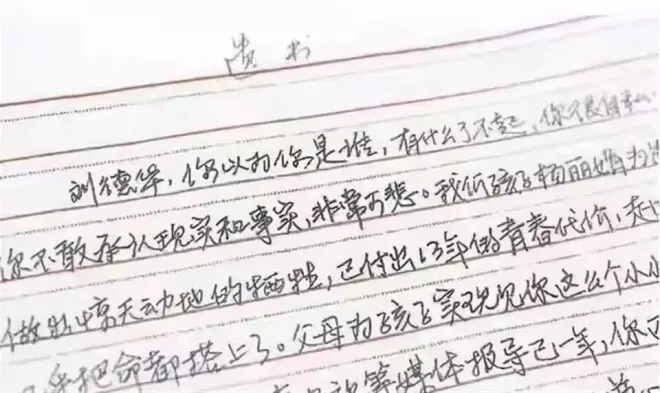 遗书
刘德华，你以为你是谁，有什么了不起，你很自私
你不敢承认现实和事实，非常可悲。我低孩子杨丽娟为
做出惊天动地的牺牲，已付出13年的青春代价，
把命都搭上了。父母为孩子实现见你这么个小小
等媒体报导已一年，你